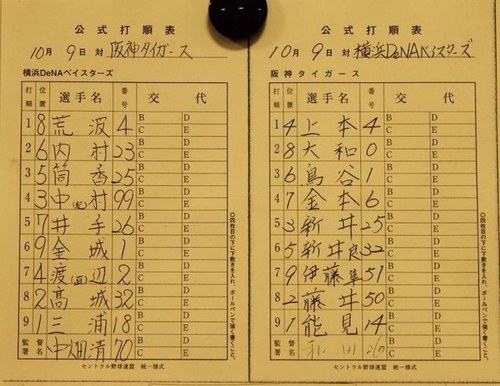 公式打順表
10月9日対 阪神タイガース
横浜DeNAベイスターズ
打順 位置 選手名 番号 交代
1 8 荒波 4 B C D E
2 6 内村 23 B C D E
3 5 筒香 25 B C D E
4 3 中(紀)村 99 B C D E
5 7 井手 26 B C D E
6 9 金城 1 B C D E
7 4 渡(直)辺 2 B C D E
8 2 高城 32 B C D E
9 1 三浦 18 B C D E
監督 署名 中畑清 70
セントラル野球連盟 統一様式
公式打順表
10月9日対 横浜DeNAベイスターズ
阪神タイガース
打順 位置 選手名 番号 交代
1 4 上本 4 B C D E
2 8 大和 0 B C D E
3 6 鳥谷 1 B C D E
4 7 金本 6 B C D E
5 3 新井 25 B C D E
6 5 新井良 32 B C D E
7 9 伊藤隼 51 B C D E
8 2 藤井 50 B C D E
9 1 能見 14 B C D E
監督 署名
セントラル野球連盟 統一様式